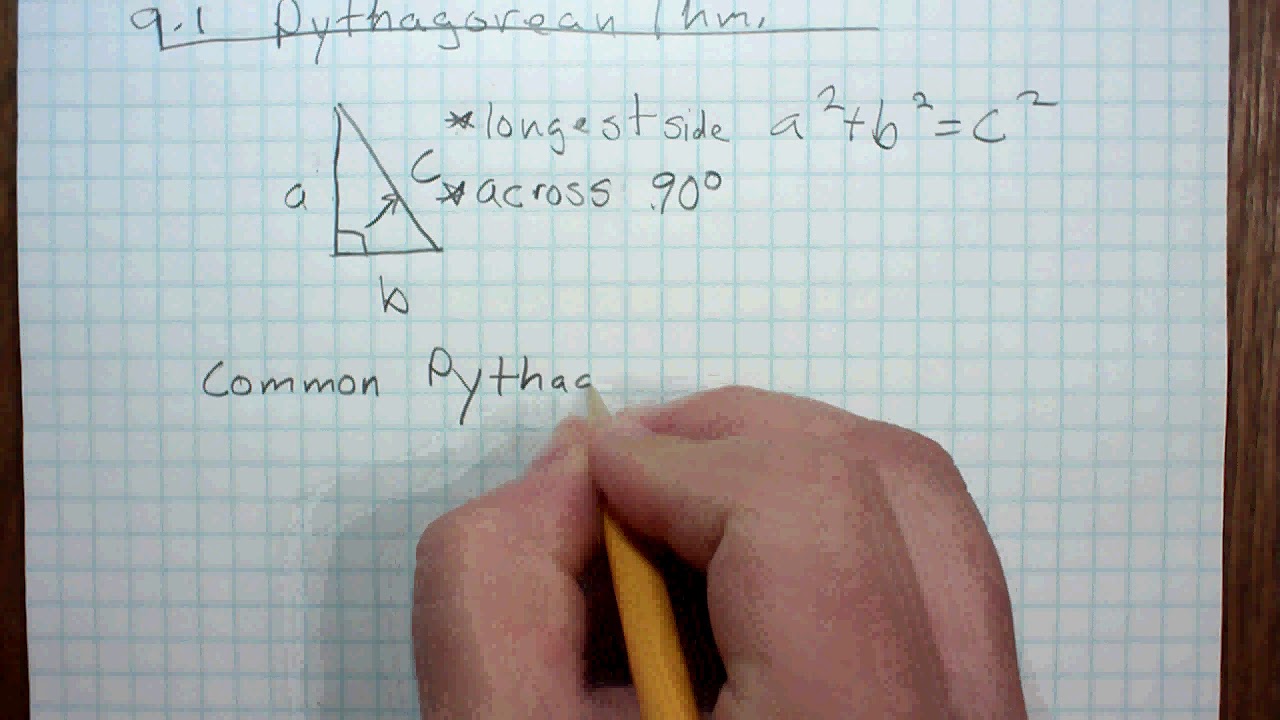 9.1 Pythagorean Thm.
*longest side a²+b²=c²
a c *across 90°
b
Common Pythag